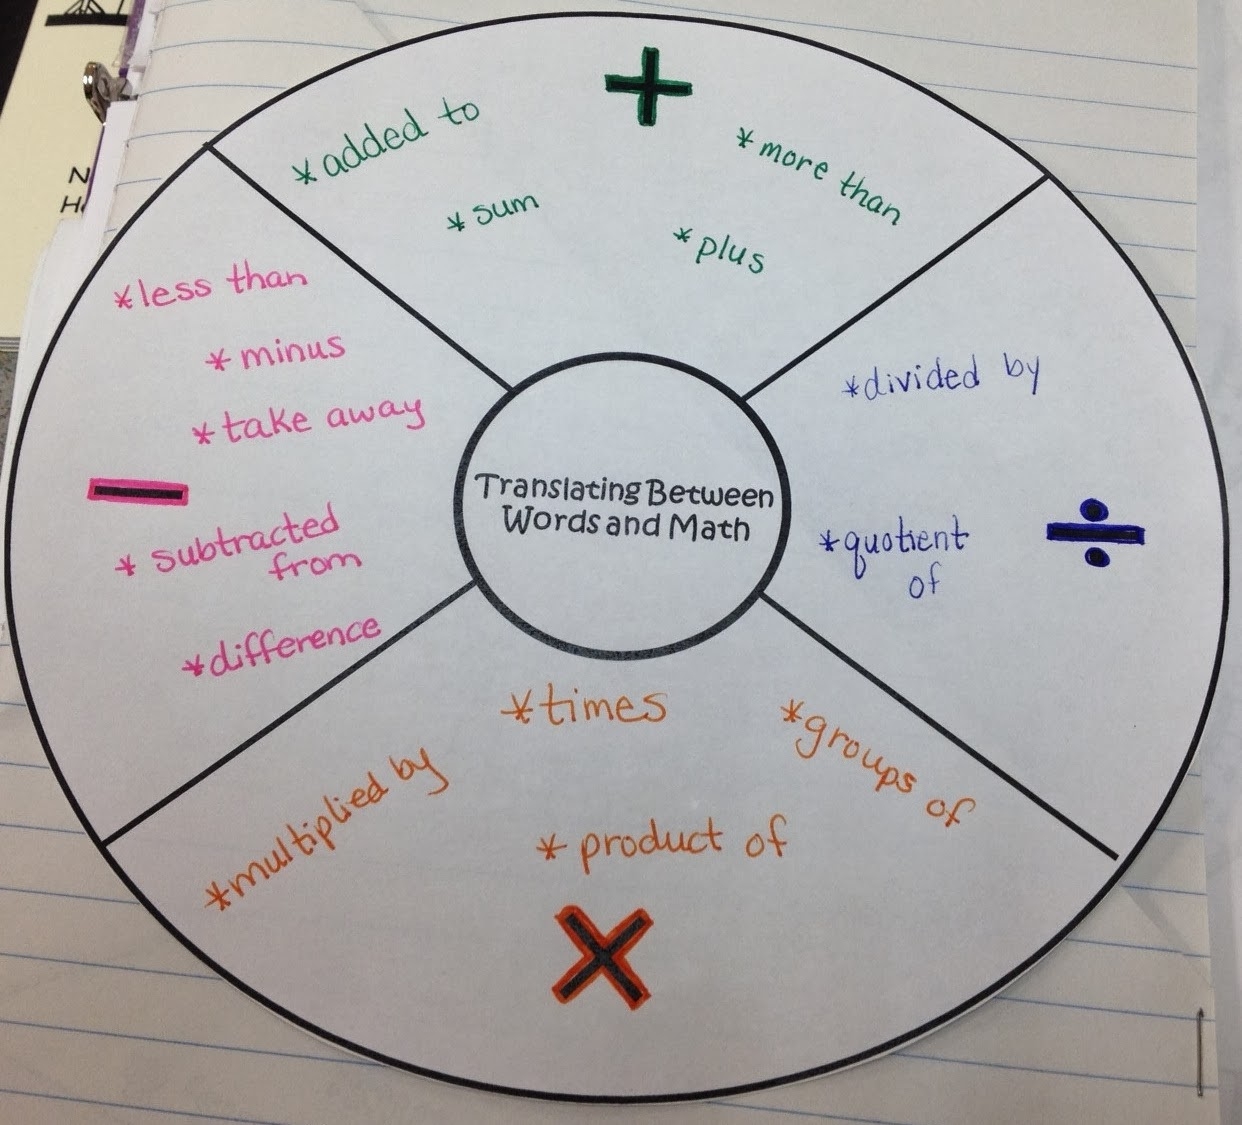 +
*added to
*more than
*sum
*plus
*less than
*minus
*take away
−
*subtracted
from
*difference
Translating Between
Words and Math
*divided by
*quotient
of
÷
*times
*groups of
*multiplied by
*product of
×